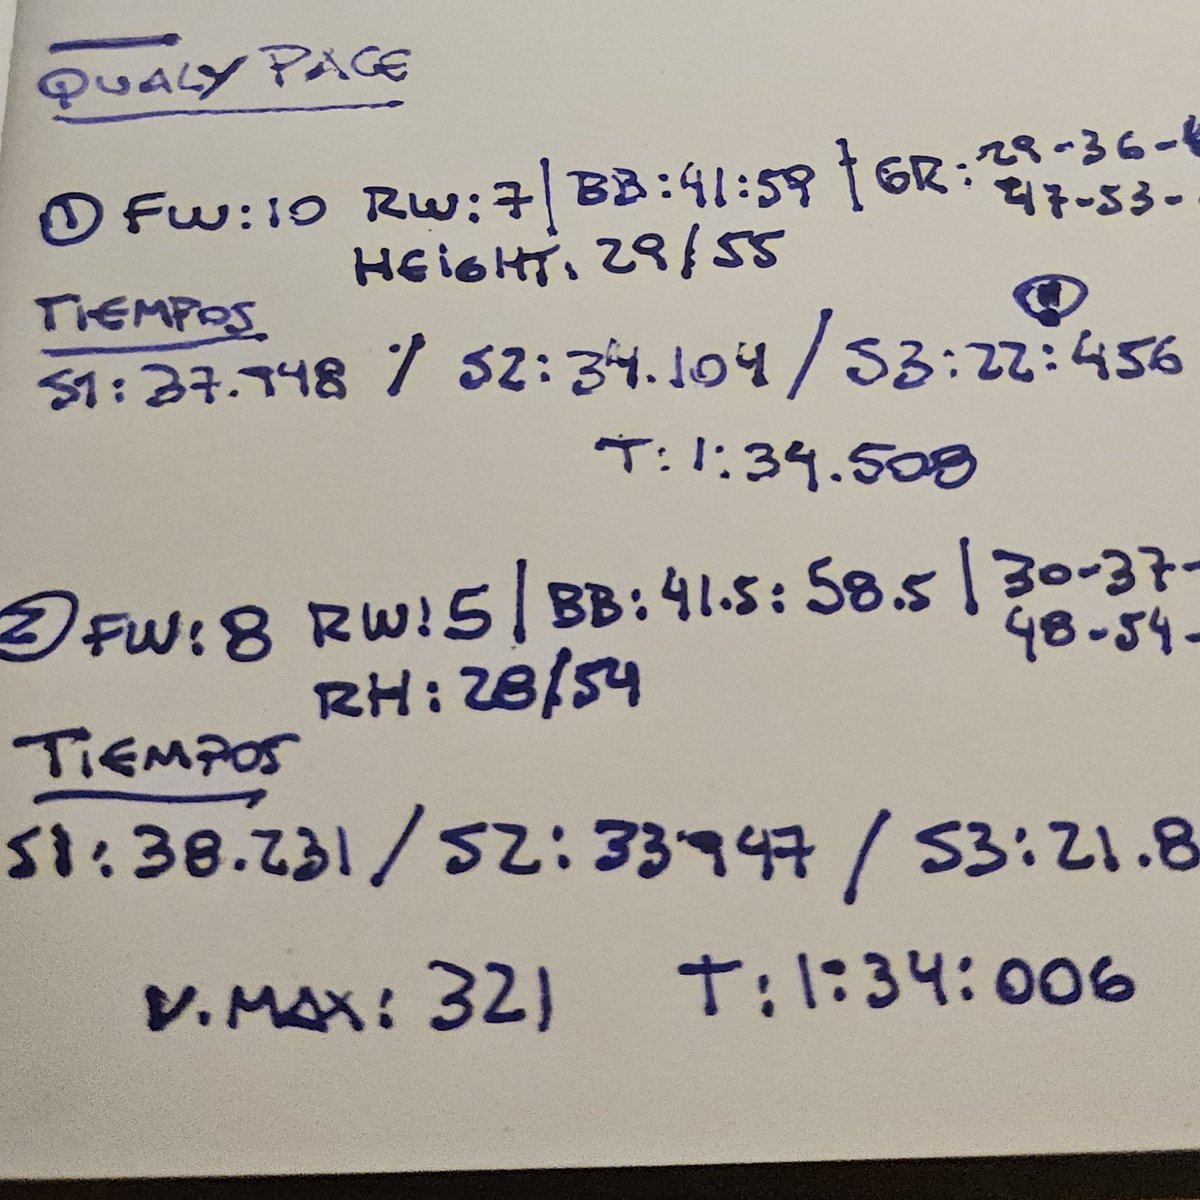 QUALY PACE
① FW:10 RW:7 | BB:41:59 | GR: 29-36-4
47-53-
HEIGHT: 29/55
TIEMPOS
S1:37.948 / S2:34.104 / S3:22:456
T:1:34.508
② FW:8 RW:5 | BB:41.5:58.5 | 30-37-
48-54-
RH:28/54
TIEMPOS
S1:38.231 / S2:33.947 / S3:21.8
V.MAX: 321 T:1:34:006